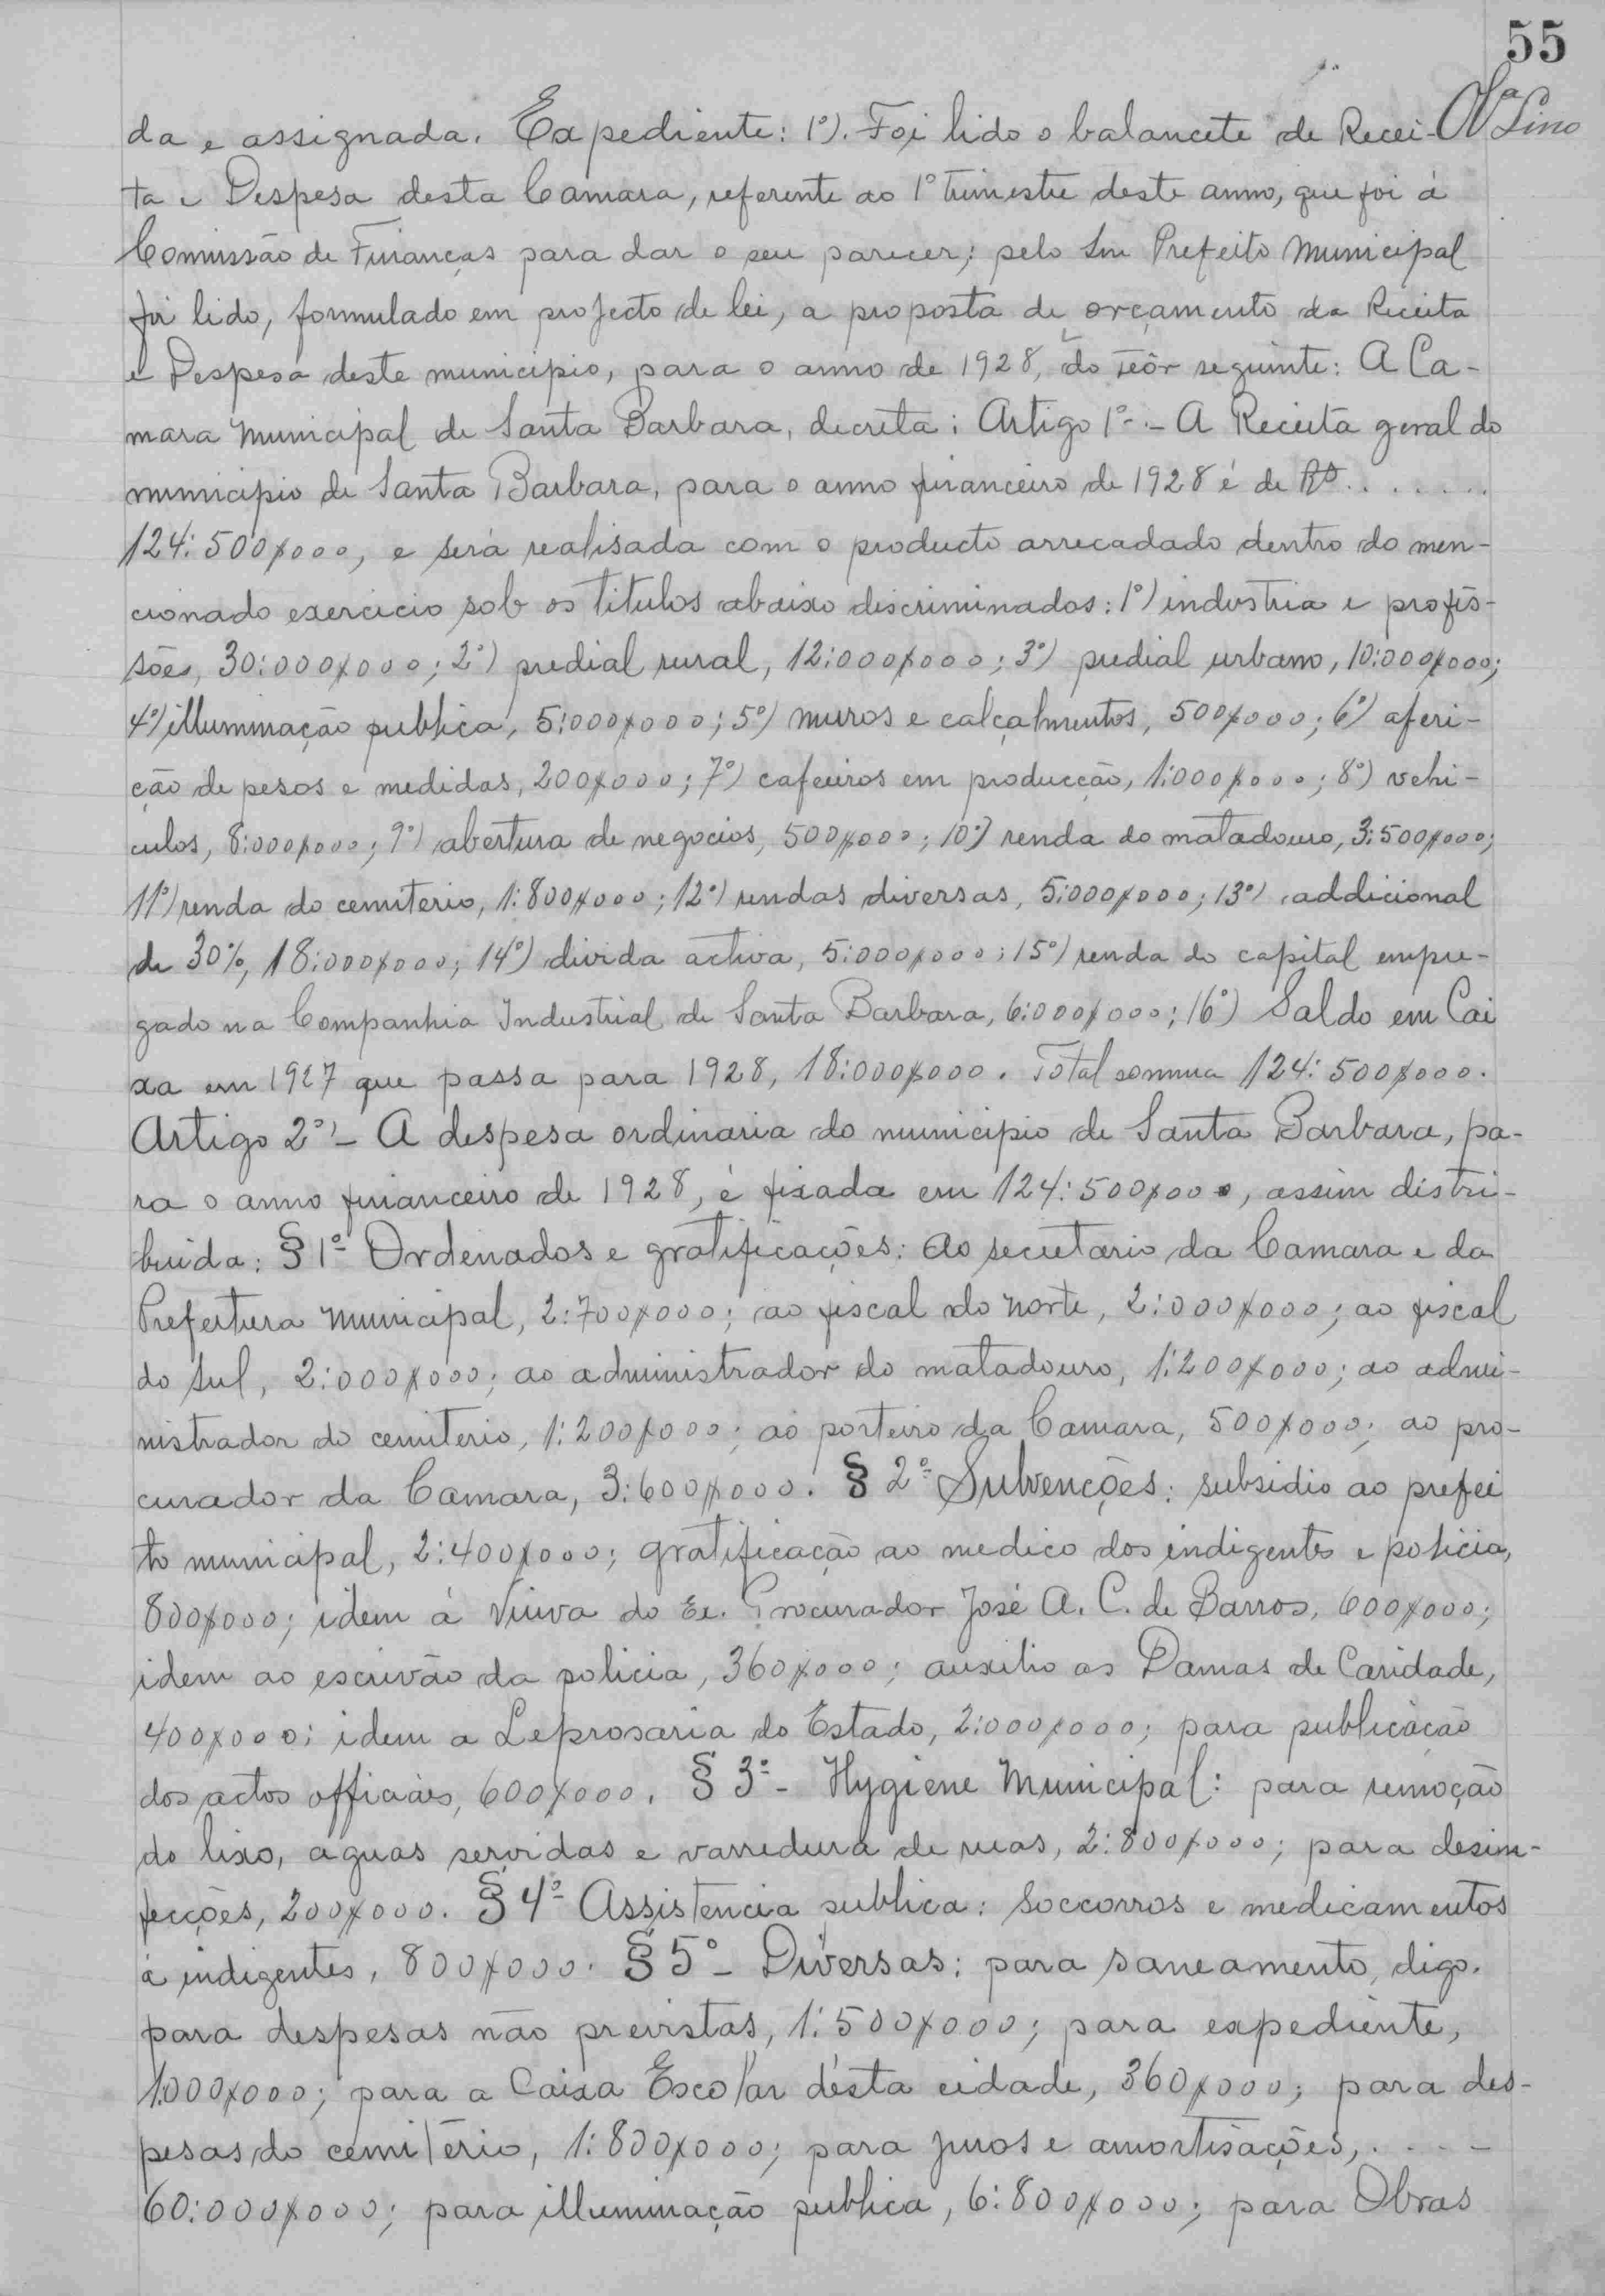 55
da e assignada. Expediente: 1º). Foi lido o balancete de Recei-
Lino
ta e Despesa desta Camara, referente ao 1º trimestre deste anno, que foi á
Comissão de Finanças para dar o seu parecer; pelo Snr Prefeito Municipal
foi lido, formulado em projecto de lei, a proposta de orçamento da Receita
e Despesa deste municipio, para o anno de 1928, do teôr seguinte: A Ca-
mara Municipal de Santa Barbara, decreta: Artigo 1º - A Receita geral do
municipio de Santa Barbara, para o anno financeiro de 1928 é de Rs. . . . . . .
124:500$000, e será realisada com o producto arrecadado dentro do men-
cionado exercicio sob os titulos abaixo discriminados: 1º) industria e profis-
sões, 30:000$000; 2º) predial rural, 12:000$000; 3º) predial urbano, 10:000$000;
4º) illuminação publica, 5:000$000; 5º) muros e calçalmentos, 500$000; 6º) aferi-
ção de pesos e medidas, 200$000; 7º) cafeeiros em producção, 1:000$000; 8º) vehi-
culos, 8:000$000; 9º) abertura de negocios, 500$000; 10º) renda do matadouro, 3:500$000;
11º) renda do cemiterio, 1:800$000; 12º) rendas diversas, 5:000$000; 13º) addicional
de 30%, 18:000$000; 14º) divida activa, 5:000$000; 15º) renda do capital empre-
gado na Companhia Industrial de Santa Barbara, 6:000$000; 16º) Saldo em Cai
xa em 1927 que passa para 1928, 18:000$000. Total somma 124:500$000.
Artigo 2º - A despesa ordinaria do municipio de Santa Barbara, pa-
ra o anno financeiro de 1928, é fixada em 124:500$000, assim distri-
buida: § 1º Ordenados e gratificações: Ao secretario da Camara e da
Prefeitura Municipal, 2:700$000; ao fiscal do norte, 2:000$000; ao fiscal
do sul, 2:000$000; ao administrador do matadouro, 1:200$000; ao admi-
nistrador do cemiterio, 1:200$000; ao porteiro da Camara, 500$000; ao pro-
curador da Camara, 3:600$000. § 2º Subvenções: subsidio ao prefei
to municipal, 2:400$000; gratificação ao medico dos indigentes e policia,
800$000; idem á Viuva do Ex. Procurador José A. C. de Barros, 600$000;
idem ao escrivão da policia, 360$000; auxilio as Damas de Caridade,
400$000; idem a Leprosaria do Estado, 2:000$000; para publicação
dos actos officiaes, 600$000. § 3º - Hygiene Municipal: para remoção
do lixo, aguas servidas e varredura de ruas, 2:800$000; para desin-
fecções, 200$000. § 4º Assistencia publica: Soccorros e medicamentos
á indigentes, 800$000. § 5º - Diversas: para saneamento, digo.
para despesas não previstas, 1:500$000; para expediente,
1:000$000; para a Caixa Escolar désta cidade, 360$000; para des-
pesas do cemitério, 1:800$000; para juros e amortisações, . . . -
60:000$000; para illuminação publica, 6:800$000; para Obras